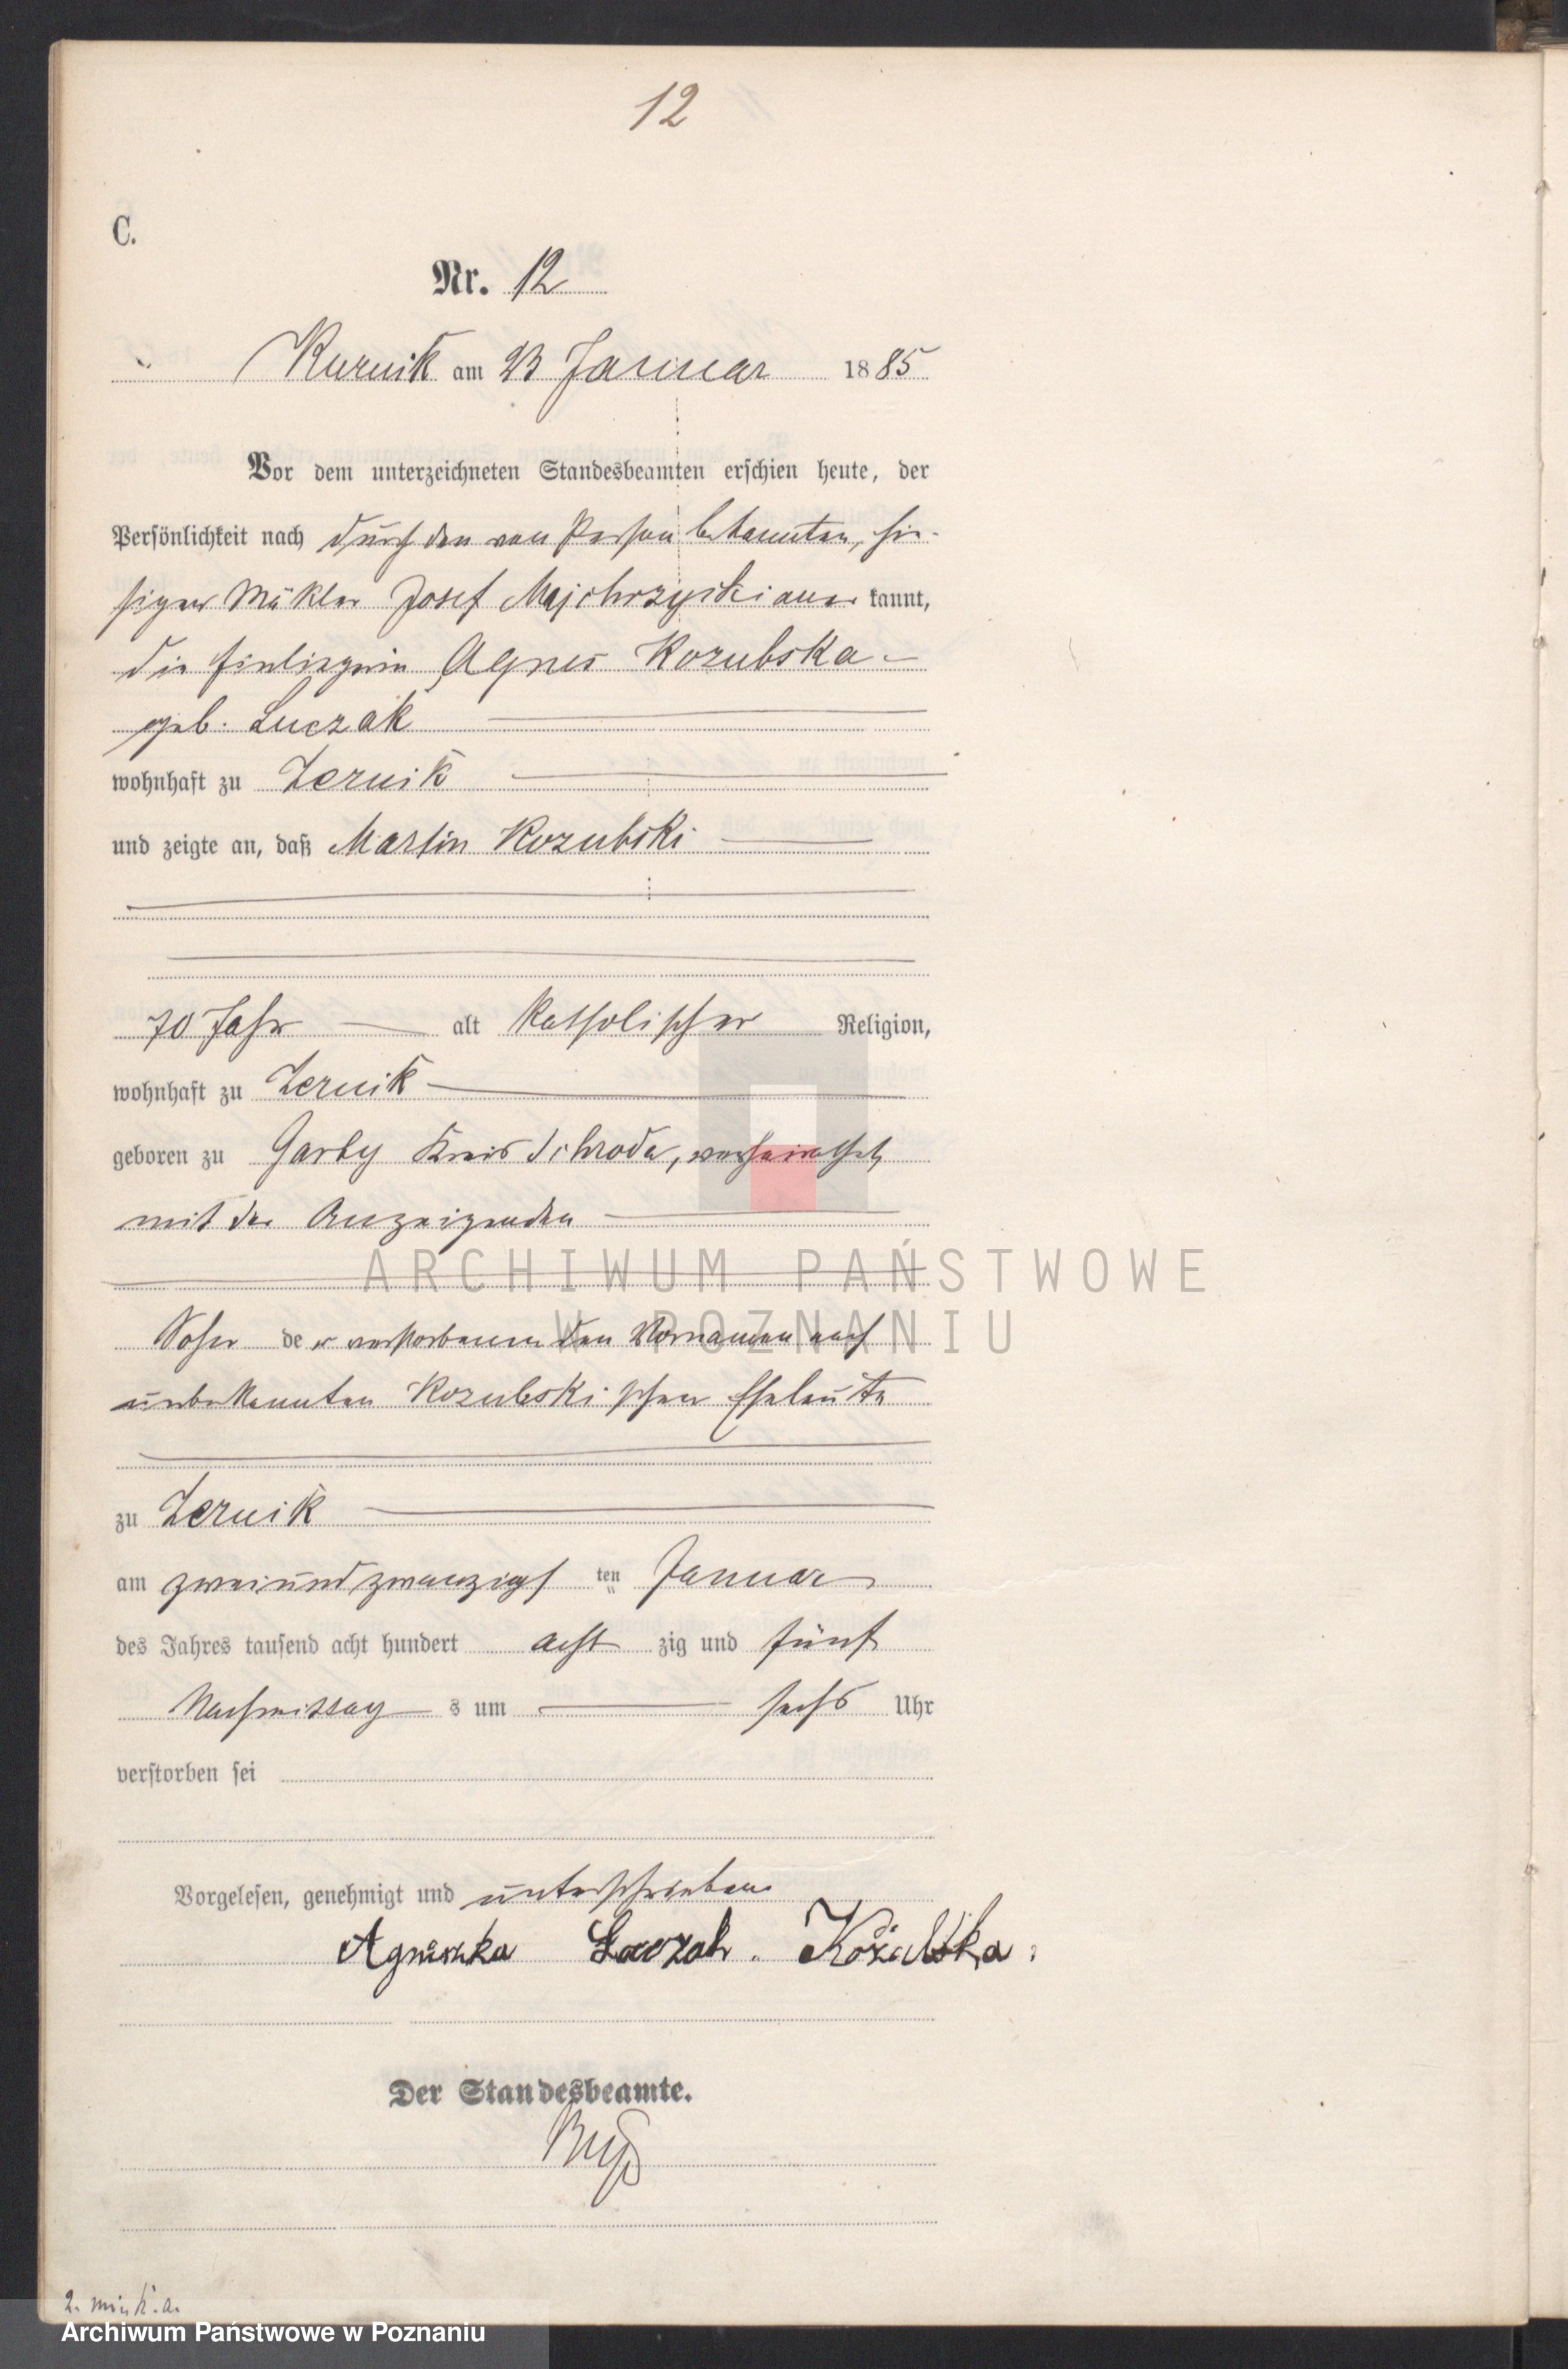 12
C.
Nr. 12
Kurnik am 23 Januar 1885
Vor dem unterzeichneten Standesbeamten erschien heute, der
Persönlichkeit nach durch den von Person bekannten, hie-
sigen Mäkler Josef Majchrzycki aner kannt,
die Einliegerin Agnes Kozubska
geb. Luczak
wohnhaft zu Zernik
und zeigte an, daß Martin Kozubski
70 Jahr alt katholischer Religion,
wohnhaft zu Zernik
geboren zu Garby Kreis Schroda, verheirathet
mit der Anzeigenden
ARCHIWUM PAŃSTWOWE
W POZNANIU
Sohn der verstorbenen den Vornamen nach
unbekannten Kozubski schen Eheleute
zu Zernik
am zweiundzwanzigs ten Januar
des Jahres tausend acht hundert acht zig und fünf
Nachmittag s um sechs Uhr
verstorben sei
Vorgelesen, genehmigt und unterschrieben
Agniszka Kozubska
Der Standesbeamte.
Archiwum Państwowe w Poznaniu